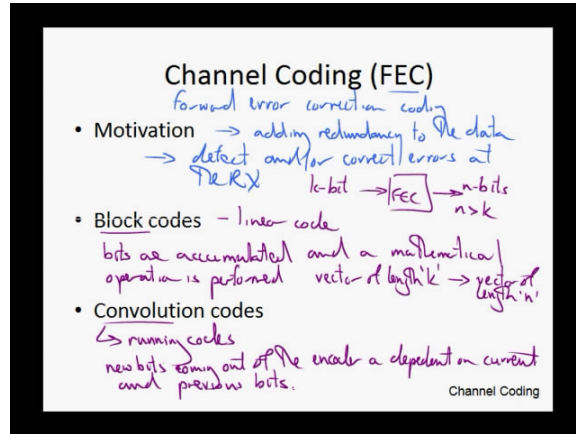 Channel Coding (FEC)
forward error correction coding
• Motivation → adding redundancy to the data
→ detect and/or correct errors at
the RX
k-bit → FEC → n-bits
n>k
• Block codes - linear code
bits are accumulated and a mathematical
operation is performed vector of length 'k' → vector of
length 'n'
• Convolution codes
↳ running codes
new bits coming out of the encoder a dependent on current
and previous bits.
Channel Coding